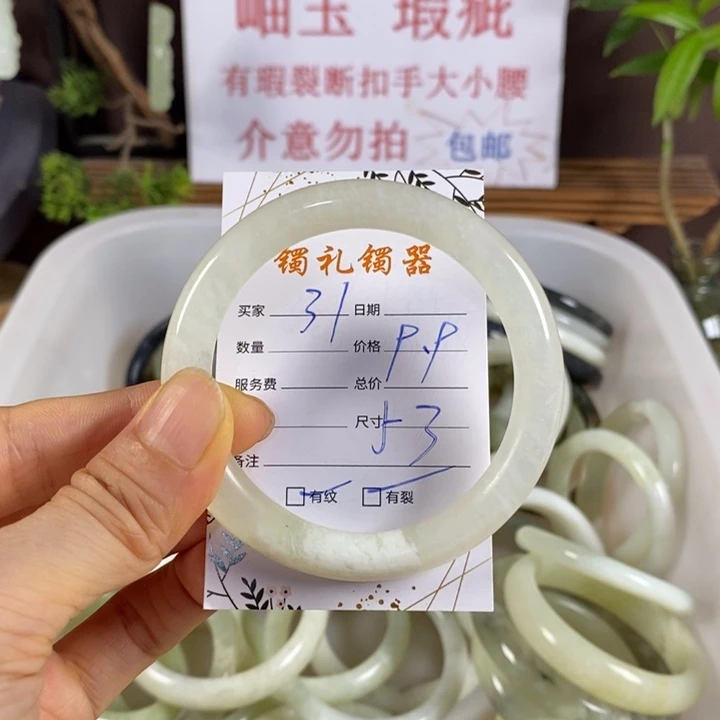 岫玉 瑕疵
有瑕裂断扣手大小腰
介意勿拍 包邮
镯礼镯器
买家 31 日期
数量 价格 9.9
服务费 总价
尺寸 53
备注
有纹 有裂